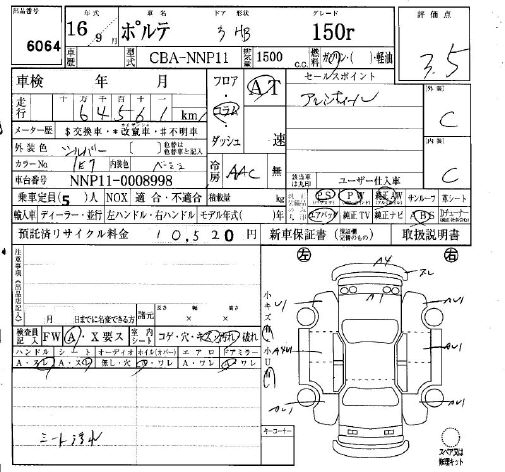 出品番号
6064
年式
16年9月
車歴
車名
ポルテ
ドア 形状
3 HB
グレード
150r
評価点
3.5
型式
CBA-NNP11
排気量
1500 c.c.
燃料
ガソリン・( )・軽油
車検 年 月
フロア・コラム・ダッシュ
AT
速
無
セールスポイント
外装
C
走行
十 万 千 百 十 一
64561 km
メーター歴 $交換車・*改竄車・#不明車
内装
C
外装色 シルバー
カラーNo. 1E7 内装色 ベージュ
冷房
AAC
ユーザー仕入車
車台番号 NNP11-0008998
乗車定員(5)人 NOX 適合・不適合 積載量 kg
PS PW 純正AW サンルーフ 革シート
輸入車 ディーラー・並行 左ハンドル・右ハンドル モデル年式( )年
エアバッグ 純正TV 純正ナビ ABS
預託済リサイクル料金 10,520円 新車保証書 取扱説明書
注意事項(出品店記入)
左
右
月 日までに名変できる方
諸元
長さ 幅 高さ
× ×
検査員記入 FW A・X要ス
室内シート コゲ・穴・キズ・汚れ・破れ
ハンドル シート オーディオ ホイル(カバー) エアロ ドアミラー
A・スレ A・スレ 無し・穴 A・ワレ A・ワレ
シート汚れ
A4
スレ
A1
AU1
AU1
AU1
AU1
キーコーナー
スペア又は修理キット